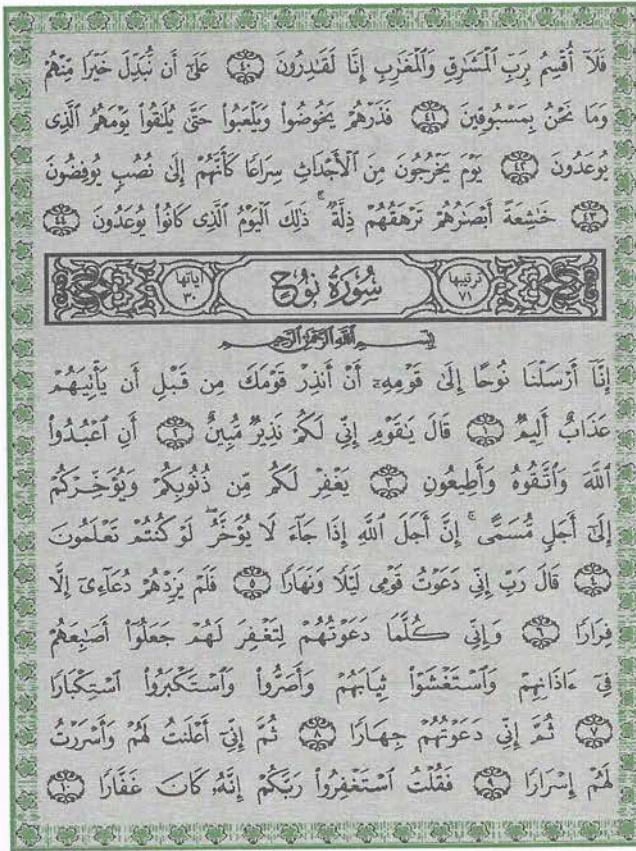 فَلَآ أُقْسِمُ بِرَبِّ ٱلْمَشَٰرِقِ وَٱلْمَغَٰرِبِ إِنَّا لَقَٰدِرُونَ ٤٠ عَلَىٰٓ أَن نُّبَدِّلَ خَيْرًا مِّنْهُمْ
وَمَا نَحْنُ بِمَسْبُوقِينَ ٤١ فَذَرْهُمْ يَخُوضُوا۟ وَيَلْعَبُوا۟ حَتَّىٰ يُلَٰقُوا۟ يَوْمَهُمُ ٱلَّذِى
يُوعَدُونَ ٤٢ يَوْمَ يَخْرُجُونَ مِنَ ٱلْأَجْدَاثِ سِرَاعًا كَأَنَّهُمْ إِلَىٰ نُصُبٍ يُوفِضُونَ
٤٣ خَٰشِعَةً أَبْصَٰرُهُمْ تَرْهَقُهُمْ ذِلَّةٌ ۚ ذَٰلِكَ ٱلْيَوْمُ ٱلَّذِى كَانُوا۟ يُوعَدُونَ ٤٤
ترتيبها ٧١ سُورَةُ نُوحٍ آياتها ٣٠
بِسْمِ ٱللَّهِ ٱلرَّحْمَٰنِ ٱلرَّحِيمِ
إِنَّآ أَرْسَلْنَا نُوحًا إِلَىٰ قَوْمِهِۦٓ أَنْ أَنذِرْ قَوْمَكَ مِن قَبْلِ أَن يَأْتِيَهُمْ
عَذَابٌ أَلِيمٌ ١ قَالَ يَٰقَوْمِ إِنِّى لَكُمْ نَذِيرٌ مُّبِينٌ ٢ أَنِ ٱعْبُدُوا۟
ٱللَّهَ وَٱتَّقُوهُ وَأَطِيعُونِ ٣ يَغْفِرْ لَكُم مِّن ذُنُوبِكُمْ وَيُؤَخِّرْكُمْ
إِلَىٰٓ أَجَلٍ مُّسَمًّى ۚ إِنَّ أَجَلَ ٱللَّهِ إِذَا جَآءَ لَا يُؤَخَّرُ ۖ لَوْ كُنتُمْ تَعْلَمُونَ
٤ قَالَ رَبِّ إِنِّى دَعَوْتُ قَوْمِى لَيْلًا وَنَهَارًا ٥ فَلَمْ يَزِدْهُمْ دُعَآءِىٓ إِلَّا
فِرَارًا ٦ وَإِنِّى كُلَّمَا دَعَوْتُهُمْ لِتَغْفِرَ لَهُمْ جَعَلُوٓا۟ أَصَٰبِعَهُمْ
فِىٓ ءَاذَانِهِمْ وَٱسْتَغْشَوْا۟ ثِيَابَهُمْ وَأَصَرُّوا۟ وَٱسْتَكْبَرُوا۟ ٱسْتِكْبَارًا
٧ ثُمَّ إِنِّى دَعَوْتُهُمْ جِهَارًا ٨ ثُمَّ إِنِّىٓ أَعْلَنتُ لَهُمْ وَأَسْرَرْتُ
لَهُمْ إِسْرَارًا ٩ فَقُلْتُ ٱسْتَغْفِرُوا۟ رَبَّكُمْ إِنَّهُۥ كَانَ غَفَّارًا ١٠